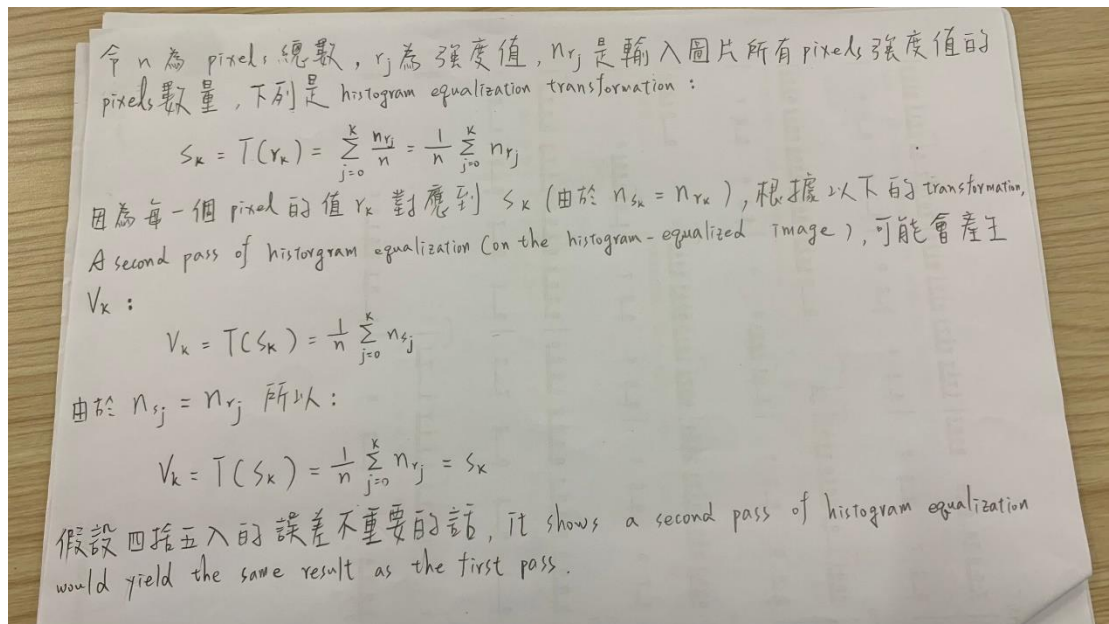 令 n 為 pixels 總數, rj 為 強度值, nrj 是輸入圖片所有pixels強度值的
pixels數量, 下列是 histogram equalization transformation :
sₖ = T(rₖ) = ∑_{j=0}^{k} n_{rj}/n = 1/n ∑_{j=0}^{k} n_{rj}
因為每一個 pixel 的值 rₖ 對應到 sₖ (由於 n_{sₖ} = n_{rₖ}), 根據以下的transformation,
A second pass of historgram equalization (on the histogram-equalized image), 可能會產生
Vₖ :
Vₖ = T(sₖ) = 1/n ∑_{j=0}^{k} n_{sj}
由於 n_{sj} = n_{rj} 所以 :
Vₖ = T(sₖ) = 1/n ∑_{j=0}^{k} n_{rj} = sₖ
假設四捨五入的誤差不重要的話, it shows a second pass of histogram equalization
would yield the same result as the first pass.